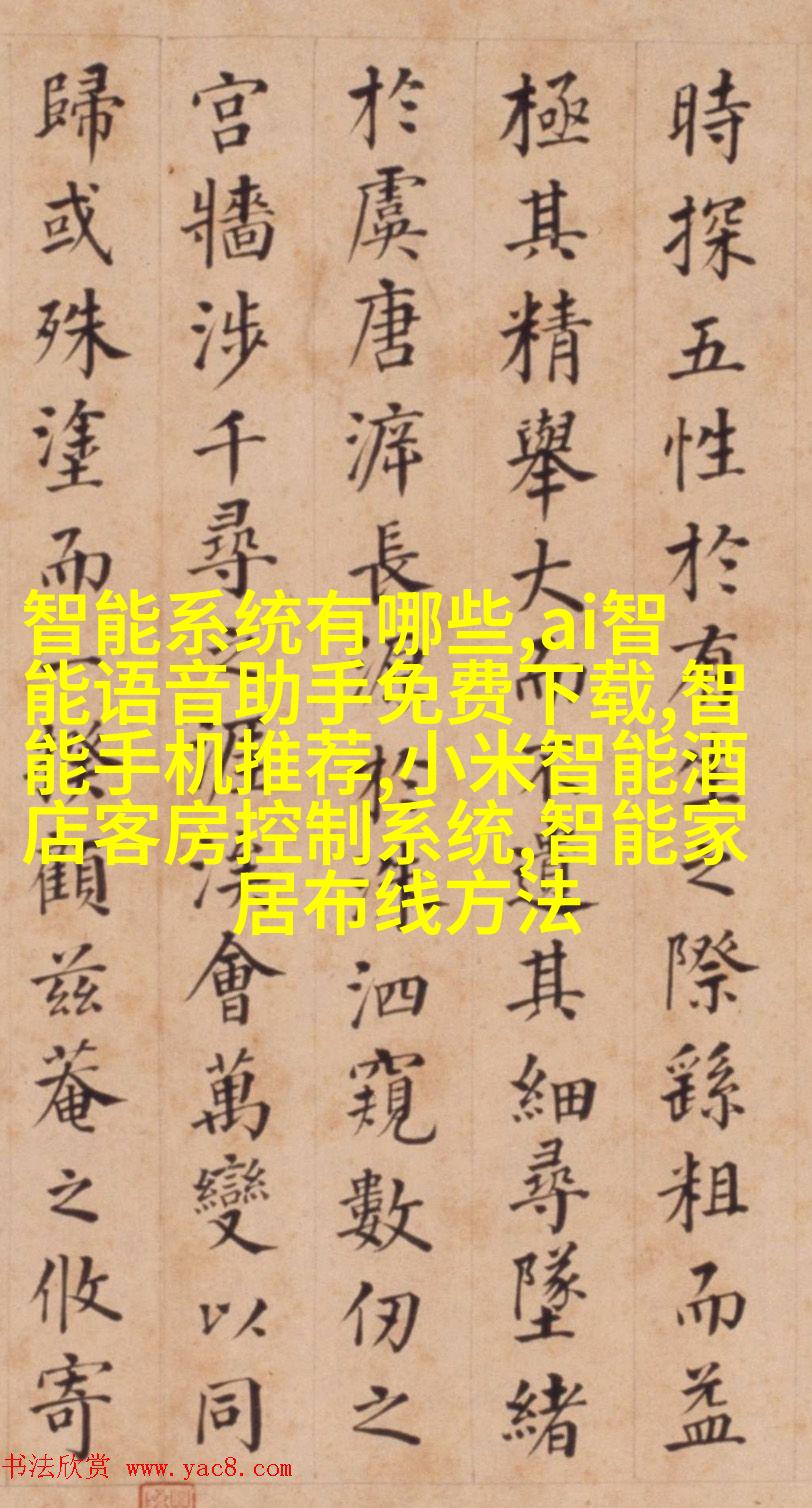 時探五性於有生之際繇粗而益
極其精舉大而不遺其細尋墜緒
於虞唐長源於洙泗窺數仞之
宮牆涉千尋之涯涘會萬變以同
歸或殊塗而一揆顧茲菴之攸寄
智能系统有哪些,ai智
能语音助手免费下载,智
能手机推荐,小米智能酒
店客房控制系统,智能家
居布线方法
书法欣赏 www.yac8.com